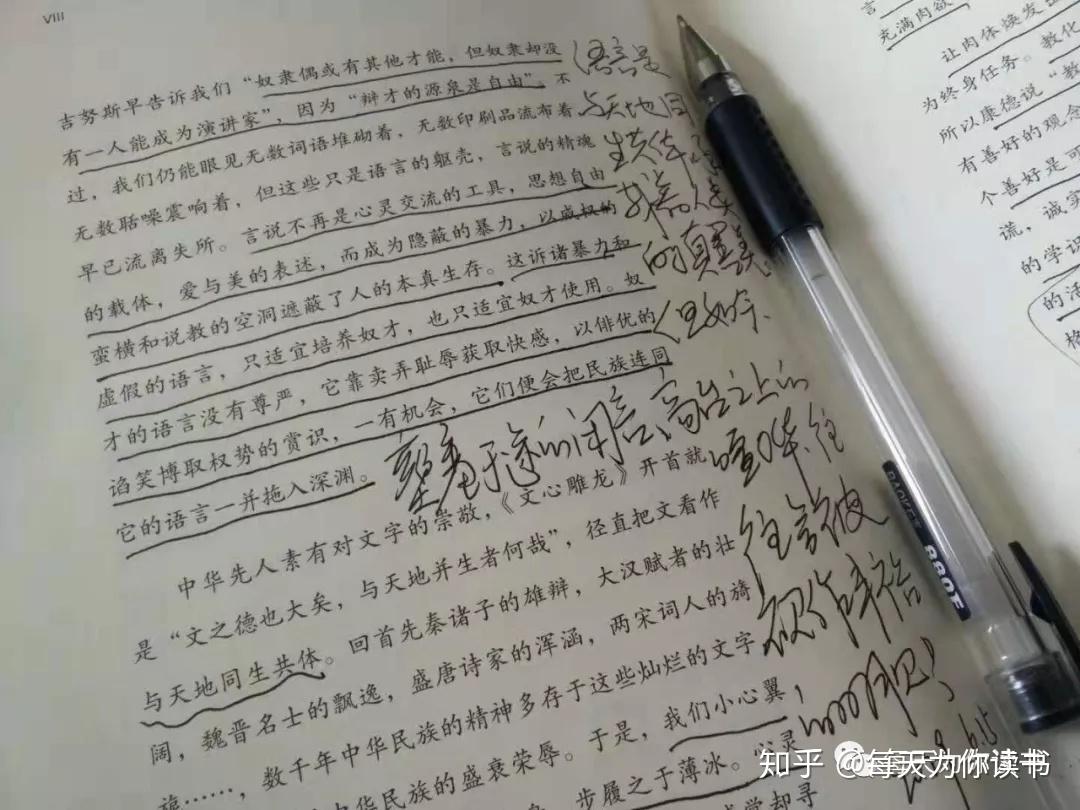 VIII
吉努斯早告诉我们“奴隶偶或有其他才能，但奴隶却没
有一人能成为演讲家”，因为“辩才的源泉是自由”。不
过，我们仍能眼见无数词语堆砌着，无数印刷品流布着
无数聒噪震响着，但这些只是语言的躯壳，言说的精魂
早已流离失所。言说不再是心灵交流的工具，思想自由
的载体，爱与美的表述，而成为隐蔽的暴力，以威权的
蛮横和说教的空洞遮蔽了人的本真生存。这诉诸暴力和
虚假的语言，只适宜培养奴才，也只适宜奴才使用。奴
才的语言没有尊严，它靠卖弄耻辱获取快感，以俳优的
谄笑博取权势的赏识，一有机会，它们便会把民族连同
它的语言一并拖入深渊。
中华先人素有对文字的崇敬，《文心雕龙》开首就
是“文之德也大矣，与天地并生者何哉”，径直把文看作
与天地同生共体。回首先秦诸子的雄辩，大汉赋者的壮
阔，魏晋名士的飘逸，盛唐诗家的浑涵，两宋词人的旖
旎……，数千年中华民族的精神多存于这些灿烂的文字
中华民族的盛衰荣辱。于是，我们小心翼，
步履之于薄冰。心灵
却寻
语言是
与天地同
生共体
的真义
但如今
高台之上的
喧哗，往
往会被
视作
言
充满肉欲
让肉体焕发出
为终身任务。教化
所以康德说“教
有善好的观念
个善好是可
谎，诚实
的学识
的活
格
880E
知乎 @每天为你读书